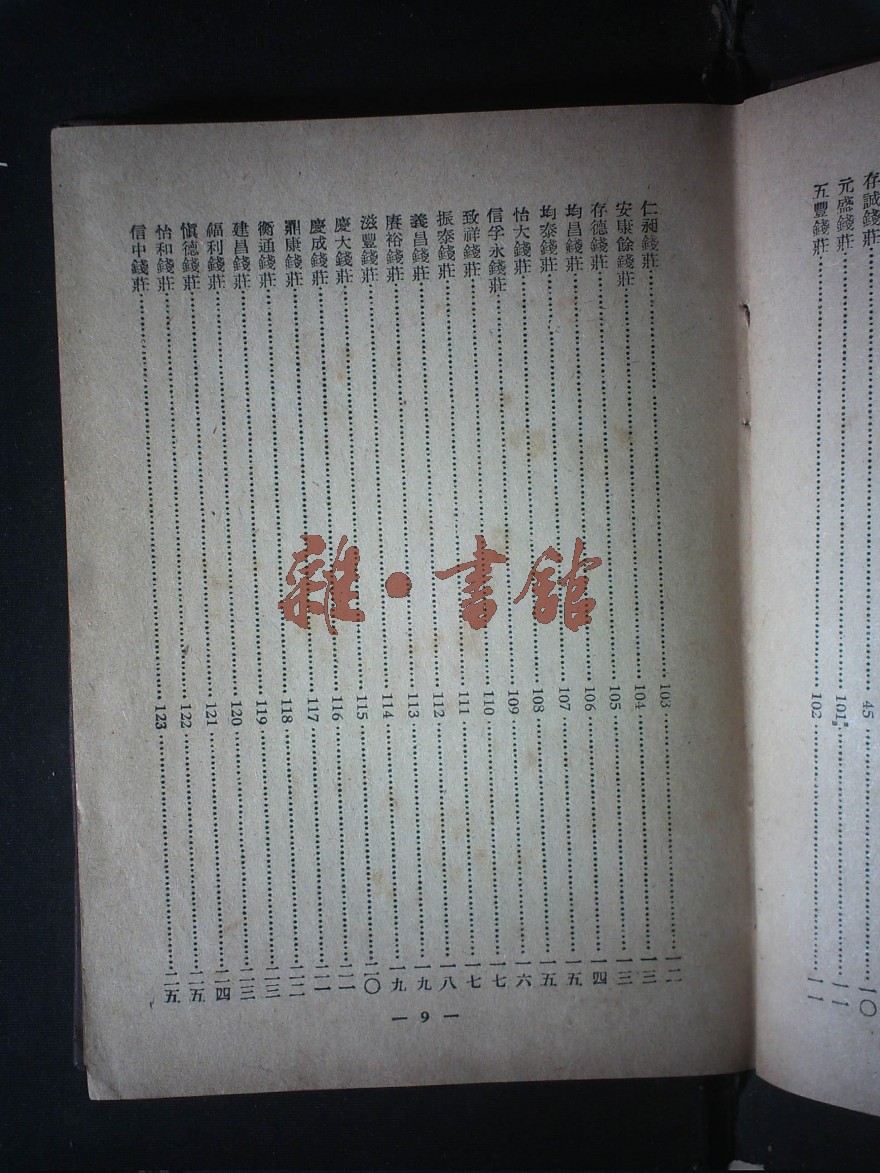 存誠錢莊……45……一〇
元盛錢莊……101……一一
五豐錢莊……102……一一
仁昶錢莊……103……一二
安康餘錢莊……104……一三
存德錢莊……105……一三
均昌錢莊……106……一四
均泰錢莊……107……一五
怡大錢莊……108……一五
信孚永錢莊……109……一六
致祥錢莊……110……一七
振泰錢莊……111……一七
義昌錢莊……112……一八
賡裕錢莊……113……一九
滋豐錢莊……114……一九
慶大錢莊……115……二〇
慶成錢莊……116……二一
鼎康錢莊……117……二一
衡通錢莊……118……二二
建昌錢莊……119……二三
福利錢莊……120……二三
愼德錢莊……121……二四
怡和錢莊……122……二五
信中錢莊……123……二五
— 9 —
雜·書館